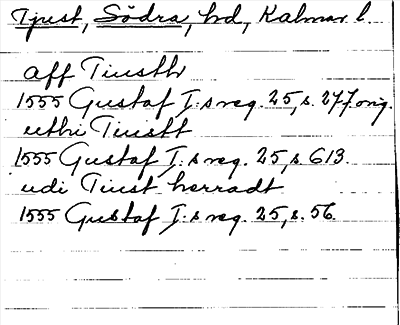 Tjust, Södra, hd, Kalmar l.
aff Tiusth
1555 Gustaf I:s reg. 25, s. 277 orig.
uthi Tiustt
1555 Gustaf I:s reg. 25, s. 613
udi Tiust herradt
1555 Gustaf I:s reg. 25, s. 56